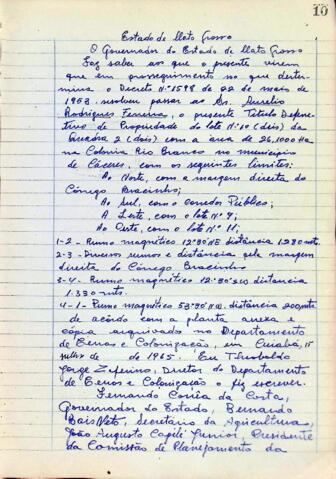 10
Estado de Mato Grosso
O Governador do Estado de Mato Grosso
Faz saber aos que o presente virem
que em prosseguimento no que deter-
mina o Decreto Nº 1598 de 22 de maio de
1953 resolveu passar ao Sr. Aurelio
Rodrigues Ferreira, o presente Titulo Defini-
tivo de Propriedade do lote Nº 10 (deis) da
Quadra 2 (dois) com a área de 26,1000 Ha
na Colonia Rio Branco no municipio
de Cáceres, com os seguintes limites:
Ao Norte, com a margem direita do
Córrego Bracinho;
Ao Sul, com o corredor Público;
A Leste, com o lote Nº 9;
Ao Oeste, com o lote Nº 11;
1-2 - Rumo magnético 12º30'NE distância 1.230 mts.
2-3 - Diversos rumos e distância pela margem
direita do Córrego Bracinho
3-4 - Rumo magnético 12º30'SO distância
1.330 mts.
4-1 - Rumo magnético distância 200 mts
de acôrdo com a planta anexa e
cópia arquivada no Departamento
de Terras e Colonização, em Cuiabá, 15
julho de de 1965. Eu Theobaldo
Jorge Zeferino, Diretor do Departamento
de Terras e Colonização o fiz escrever.
Fernando Corrêa da Costa,
Governador do Estado, Bernardo
Bais Neto, Secretário da Agricultura,
João Augusto Capilé Junior, Presidente
da Comissão de Planejamento da